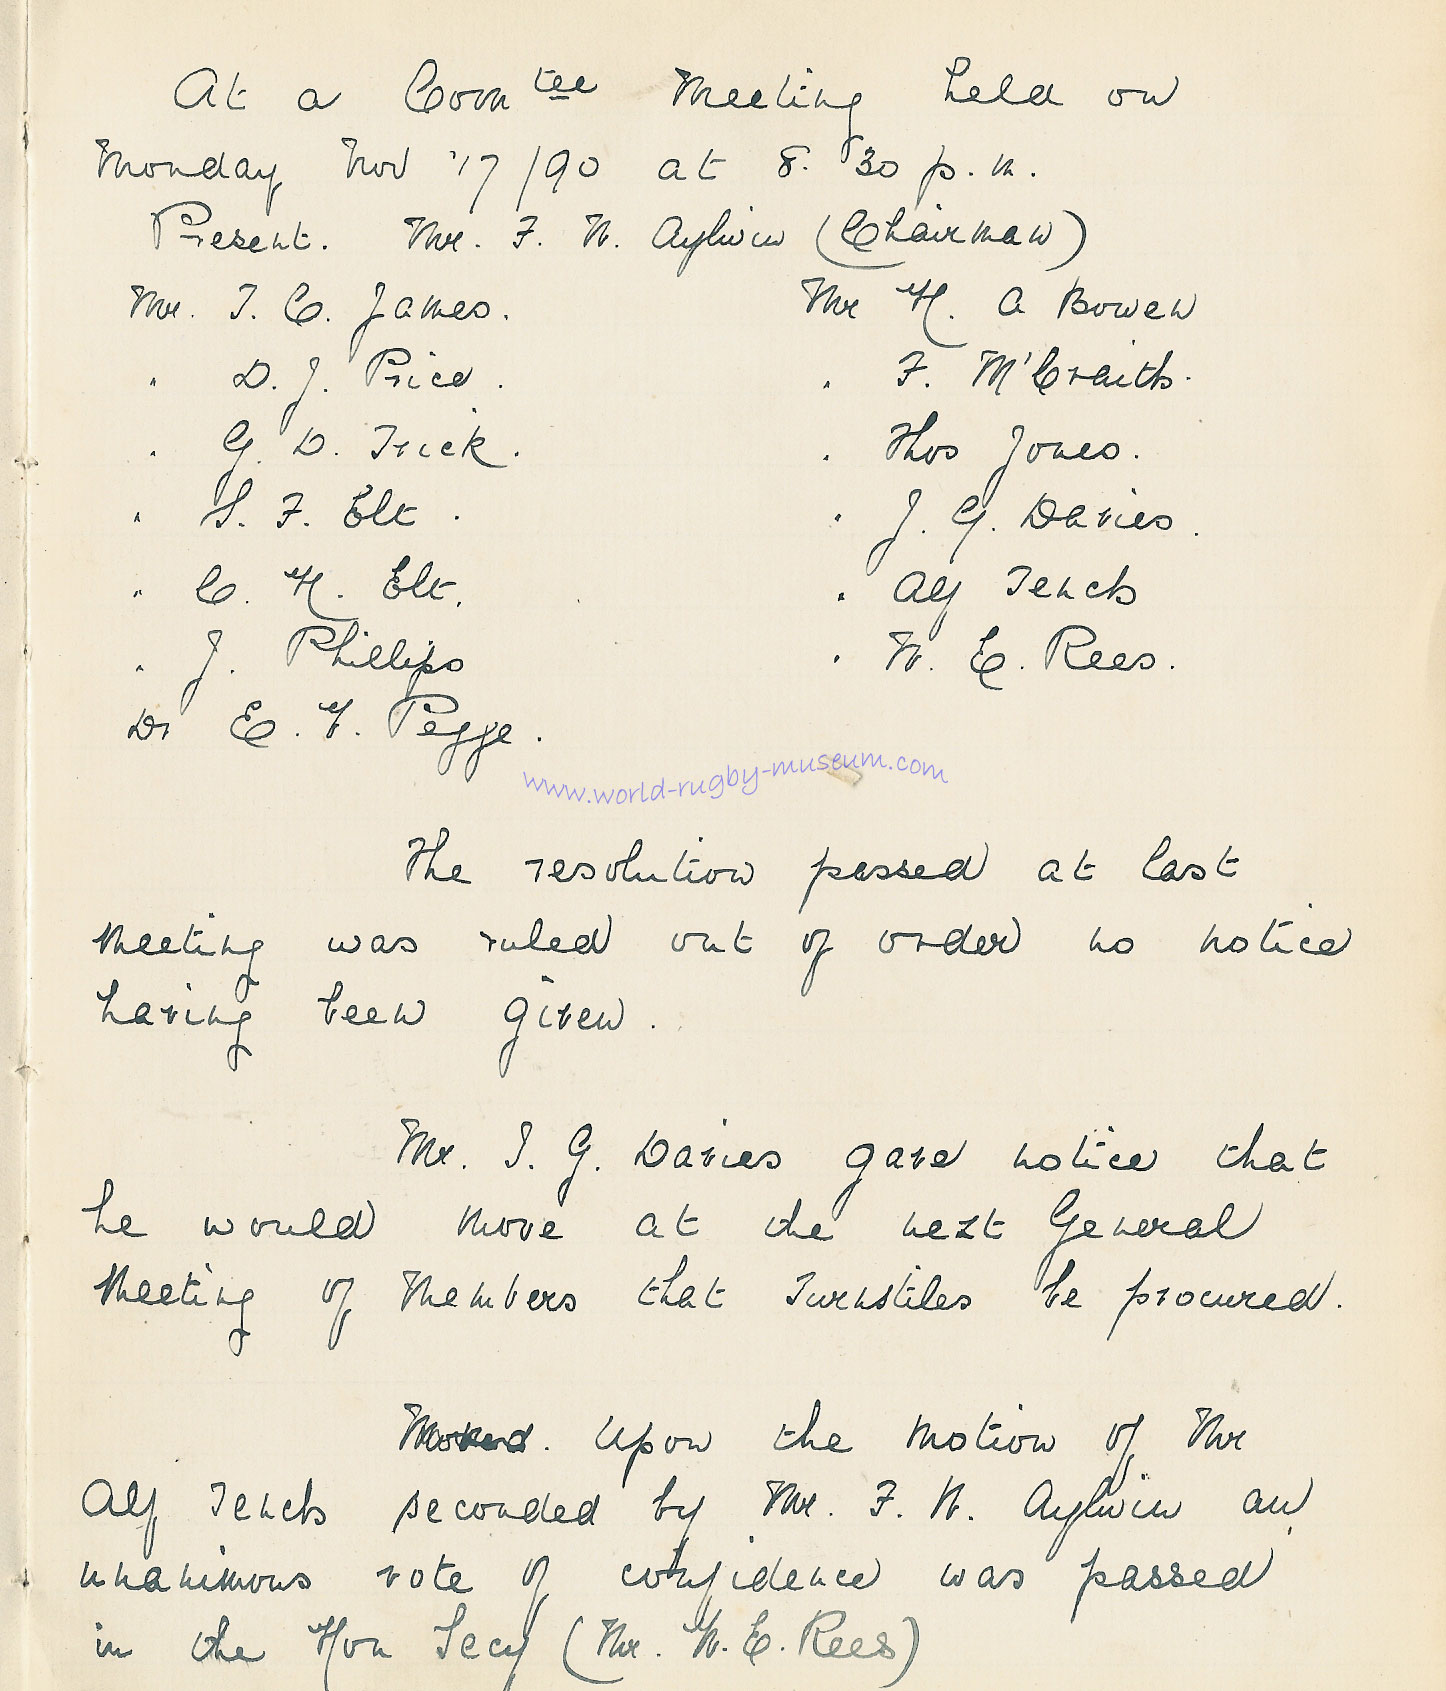 At a Com tee Meeting held on
Monday Nov 17/90 at 8.30 p.m.
Present. Mr. F. W. Aylwin (Chairman)
Mr. T. C. James. Mr H. A Bowen
" D. J. Price. " F. McCraith.
" G. D. Trick. " Thos Jones.
" S. F. Elt. " J. G. Davies.
" C. H. Elt. " Alf Tench
" J. Phillips " W. E. Rees.
Dr E. V. Pegge.
www.world-rugby-museum.com
The resolution passed at last
Meeting was ruled out of order no notice
having been given.
Mr. J. G. Davies gave notice that
he would move at the next General
Meeting of Members that Turnstiles be procured.
Moved. Upon the motion of Mr
Alf Tench seconded by Mr. F. W. Aylwin an
unanimous vote of confidence was passed
in the Hon Secy (Mr. W. E. Rees)